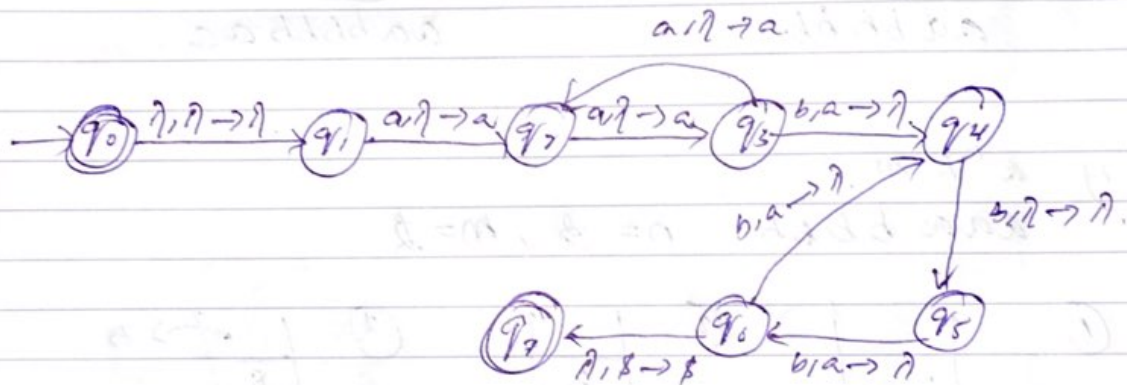 a,λ → a
q0 λ,λ → λ q1 a,λ → a q2 a,λ → a q3 b,a → λ q4
b,a → λ
b,λ → λ
q7 λ,$ → $ q6 b,a → λ q5